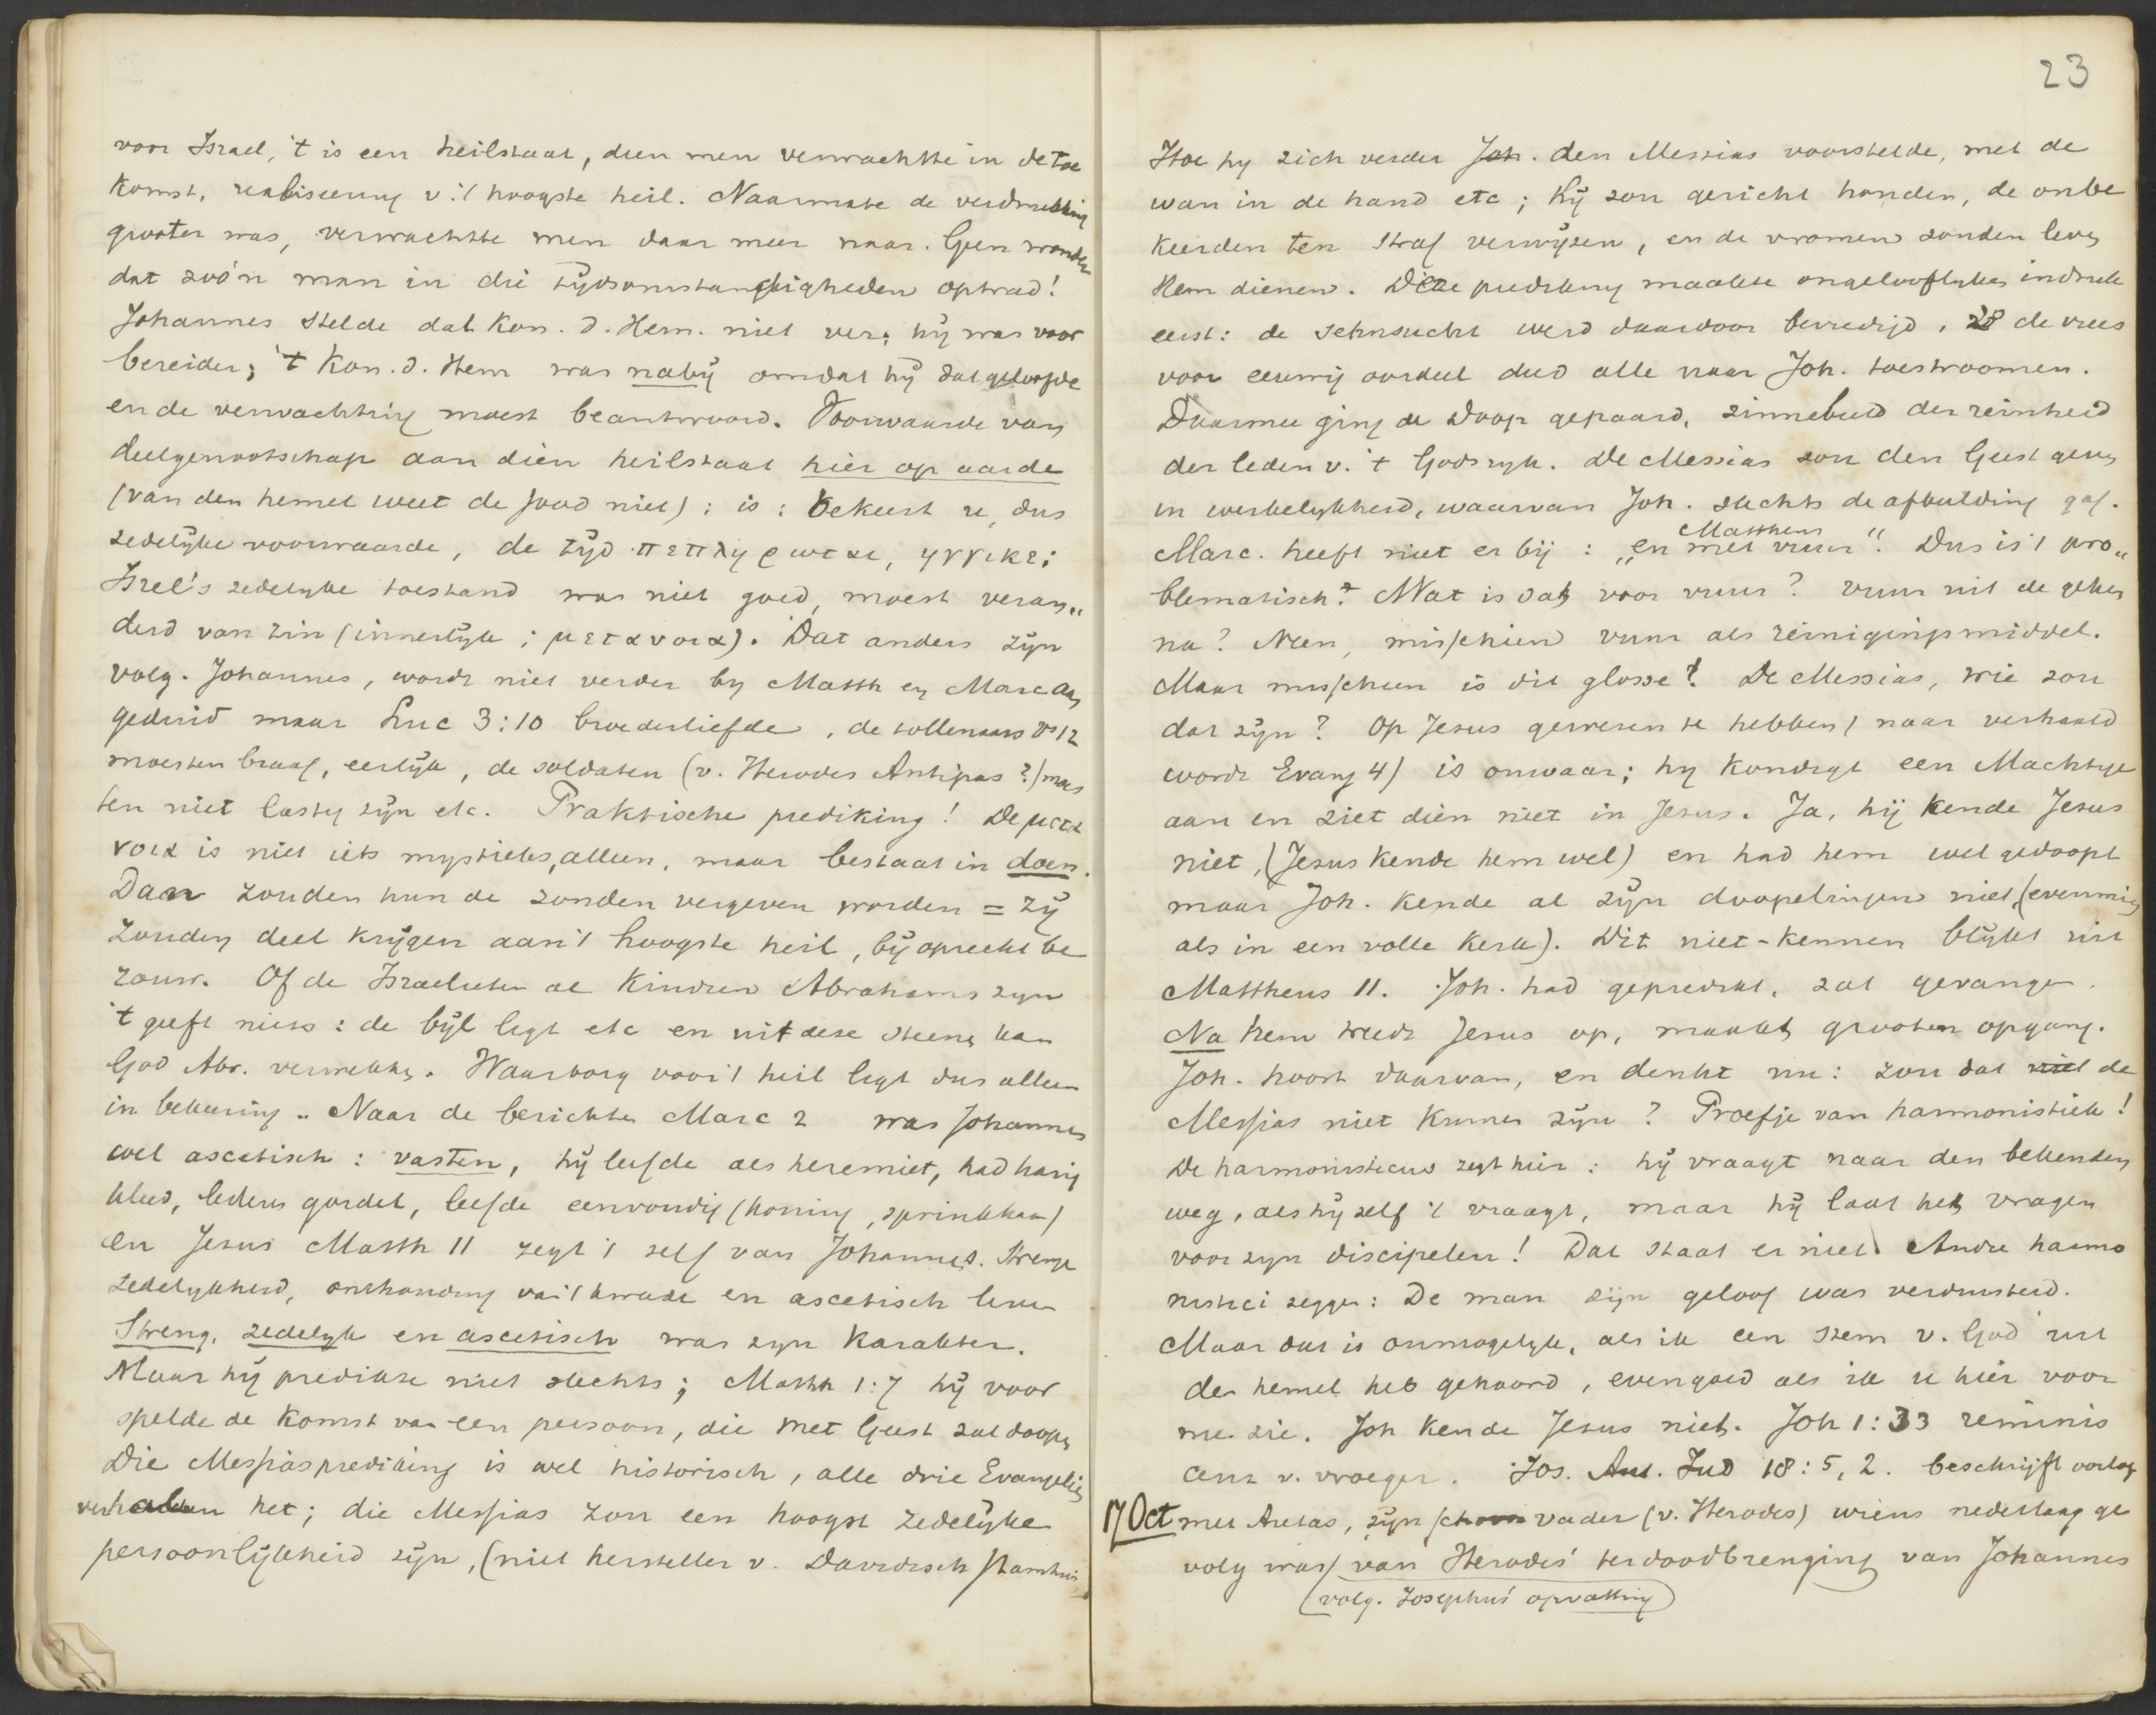 voor Israel, 't is een heilstaat, dien men verwachtte in de toe
komst, realiseering v. 't hoogste heil. Naarmate de verdrukking
grooter was, verwachtte men daar meer naar. Geen wonder
dat zoo'n man in die tijdsomstandigheden optrad!
Johannes stelde dat Kon. d. Hem. niet ver; hij was voor
bereider; 't Kon. d. Hem was nabij omdat hij dat geloofde
en de verwachting moest beantwoord. Voorwaarde van
deelgenootschap aan dien heilstaat hier op aarde
(van den hemel weet de Jood niet) : is : bekeert u, dus
zedelijke voorwaarde, de tijd πεπληρωται, ηγγικε;
Isrel's zedelijke toestand was niet goed, moest veran„
derd van zin (innerlijk ; μετανοια). Dat anders zijn
volg. Johannes, wordt niet verder by Matth en Marc aan
geduid maar Luc 3:10 broederliefde, de tollenaars vs 12
moesten braaf, eerlijk, de soldaten (v. Herodes Antipas?) moes
ten niet lastig zijn etc. Praktische prediking! De μετα
νοια is niet iets mystieks, alleen, maar bestaat in doen.
Dan zouden hun de zonden vergeven worden = zij
zouden deel krijgen aan 't hoogste heil, bij oprecht be
rouw. Of de Israelieten al kindren Abrahams zijn
't geeft niets : de bijl ligt etc en uit deze steenen kan
God Abr. verwekken. Waarborg voor 't heil ligt dus alleen
in bekeering. Naar de berichten Marc 2 was Johannes
wel ascetisch : vasten, hij leefde als heremiet, had harig
kleed, lederen gordel, leefde eenvoudig (honing, sprinkhaan)
en Jesus Matth 11 zegt 't zelf van Johannes. Strenge
zedelijkheid, onthouding van 't kwade en ascetisch leven
Streng, zedelijk en ascetisch was zijn karakter.
Maar hij predikte niet slechts ; Matth 1:7 hij voor
spelde de komst van een persoon, die met Geest zal doopen
Die Messiasprediking is wel historisch, alle drie Evangelien
verhalen het; die Messias zou een hoogst zedelijke
persoonlijkheid zijn, (niet hersteller v. Davidisch stamhuis
23
Hoe hij zich verder Joh. den Messias voorstelde, met de
wan in de hand etc ; hij zou gericht houden, de onbe
keerden ten straf verwijzen, en de vromen zouden leven
Hem dienen. Deze prediking maakte ongelooflijken indruk
eerst: de sehnsucht werd daardoor bevredigd, de vrees
voor eeuwig oordeel deed alle naar Joh. toestroomen.
Daarmee ging de doop gepaard, zinnebeeld der reinheid
der leden v. 't Godsrijk. De Messias zou den Geest geven
in werkelijkheid, waarvan Joh. slechts de afbeelding gaf.
Mattheus
Marc. heeft niet er bij : „en met vuur". Dus is 't pro„
blematisch? Wat is dat voor vuur? Vuur uit de gehen
na? Neen, misschien vuur als reinigingsmiddel.
Maar misschien is dit glosse? De Messias, wie zou
dat zijn? Op Jesus gewezen te hebben, (naar verhaald
wordt Evang 4) is onwaar; hij kondigt een Machtige
aan en ziet dien niet in Jesus. Ja, hij kende Jesus
niet, (Jesus kende hem wel) en had hem wel gedoopt
maar Joh. kende al zijn doopelingen niet, (evenmin
als in een volle kerk). Dit niet-kennen blijkt uit
Mattheus 11. Joh. had gepredikt, zat gevangen.
Na hem treedt Jesus op, maakt grooten opgang.
Joh. hoort daarvan, en denkt nu: zou dat niet de
Messias niet kunnen zijn? Proefje van harmonistiek!
De harmonisticus zegt hier : hij vraagt naar den bekenden
weg, als hij zelf 't vraagt, maar hij laat het vragen
voor zijn discipelen! Dat staat er niet. Andre harmo
nistici zeggen: De man zijn geloof was verduisterd.
Maar dat is onmogelijk, als ik een stem v. God uit
den hemel heb gehoord, evengoed als ik u hier voor
me zie. Joh kende Jesus niet. Joh 1:33 reminis
cens v. vroeger. Jos. Ant. Jud 18:5, 2. beschrijft oorlog
17 Oct met Aretas, zijn schoonvader (v. Herodes) wiens nederlaag ge
volg was van Herodes' terdoodbrenging van Johannes
(volg. Josephus' opvatting)